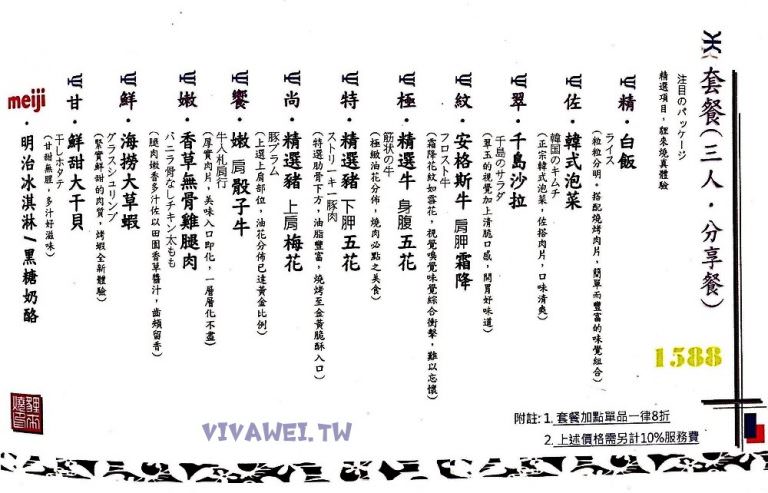 套餐(三人・分享餐)
1588
注目のパッケージ
精選項目，貍來燒真體驗
精・白飯
ライス
(粒粒分明，搭配燒烤肉片，簡單而豐富的味覺組合)
佐・韓式泡菜
韓国のキムチ
(正宗韓式泡菜，佐搭肉片，口味清爽)
翠・千島沙拉
千島のサラダ
(翠玉的視覺加上清脆口感，開胃好味道)
紋・安格斯牛 肩胛 霜降
フロスト牛
(霜降花紋如雪花，視覺嗅覺味覺綜合衝擊，難以忘懷)
極・精選牛 身腹 五花
筋状の牛
(極緻油花分佈，燒肉必點之美食)
特・精選豬 下胛 五花
ストリーキー豚肉
(特選肋骨下方，油脂豐富，燒烤至金黃脆酥入口)
尚・精選豬 上肩 梅花
豚プラム
(上選上肩部位，油花分佈已達黃金比例)
饗・嫩 肩 骰子牛
牛入札肩行
(厚實肉片，美味入口即化，一層層化不盡)
嫩・香草無骨雞腿肉
バニラ骨なしチキン太もも
(腿肉嫩香多汁佐以田園香草醬汁，齒頰留香)
鮮・海撈大草蝦
グラスシュリンプ
(緊實鮮甜的肉質，烤蝦全新體驗)
甘・鮮甜大干貝
干しホタテ
(甘甜無腥，多汁好滋味)
meiji・明治冰淇淋/黑糖奶酪
附註: 1. 套餐加點單品一律8折
2. 上述價格需另計10%服務費
VIVAWEI.TW